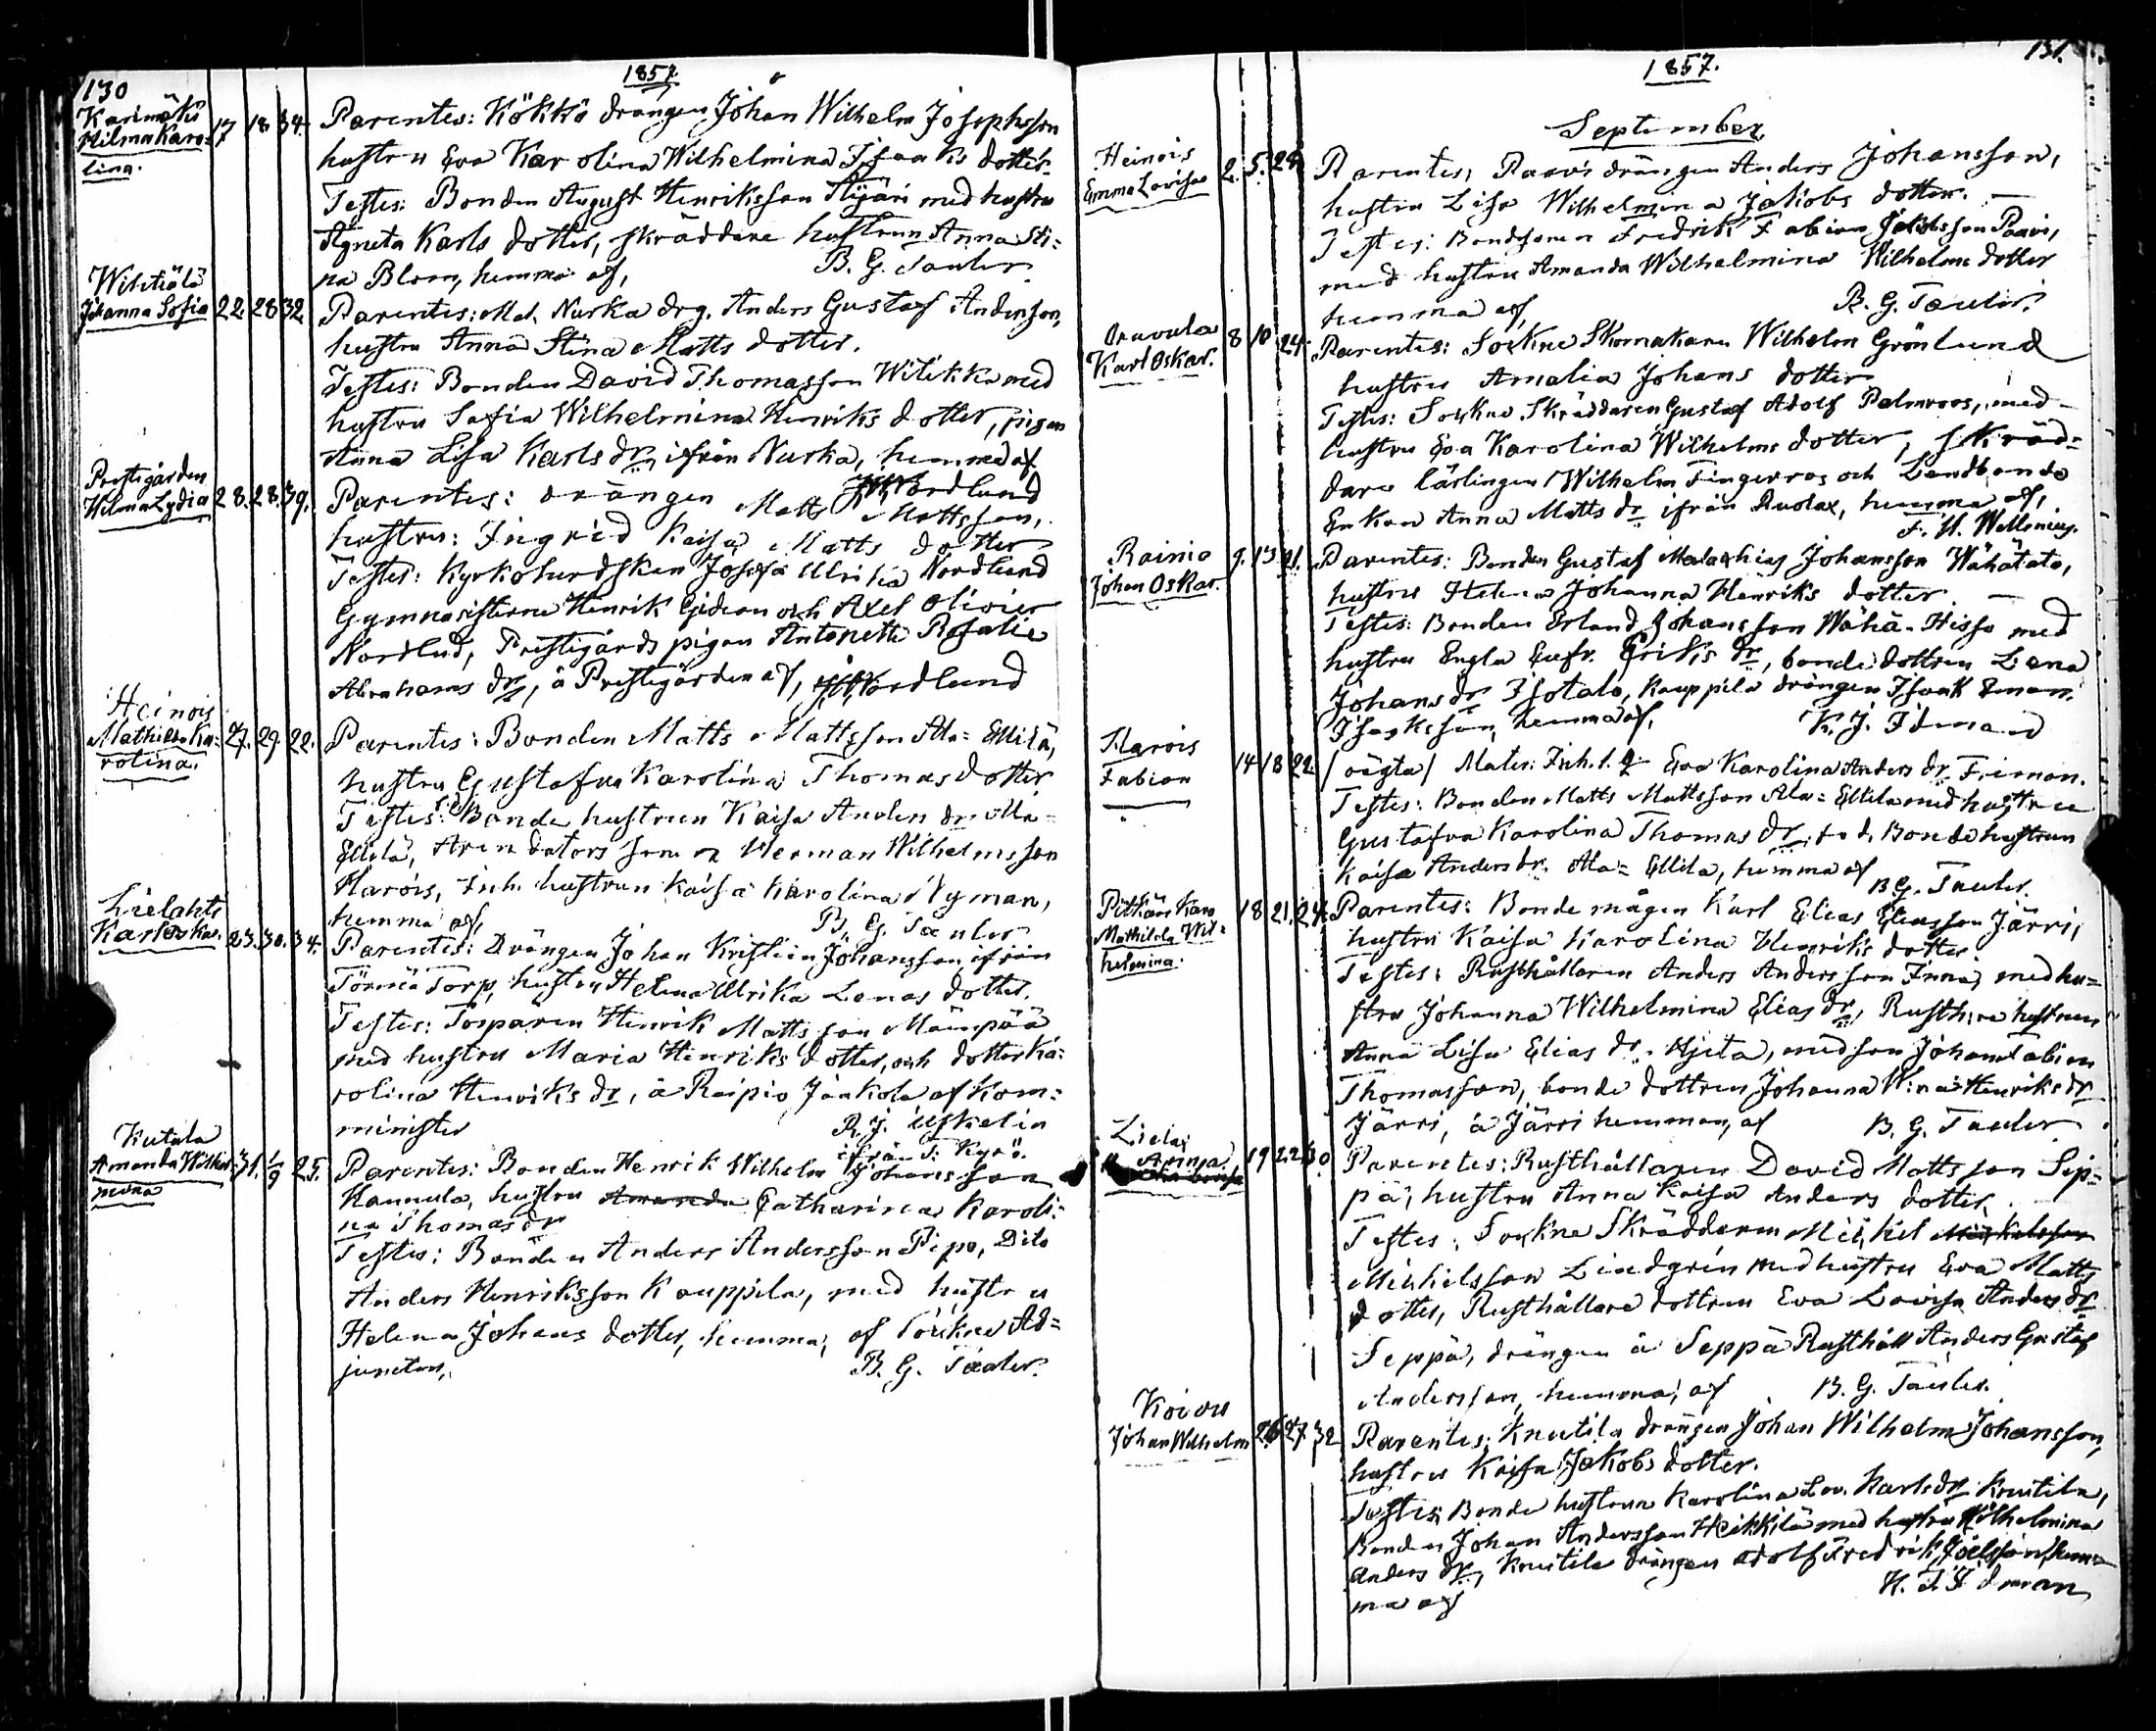 130
1857.
Karimäki
Hilma Karo=
lina.
17 18 34.
Parentes: Kökkö drängen Johan Wilhelm Josephsson
hustru Eva Karolina Wilhelmina Isaaks dotter
Testes: Bonden August Henriksson Äijäri med hustru
Agneta Karls dotter, skräddare hustrun Anna Sti=
na Blom, hemma af,
B. G. Tauler
Wihtiälä
Johanna Sofia
22. 28 32.
Parentes: Mat. Nurka drg. Anders Gustaf Andersson,
hustru Anna Stina Matts dotter.
Testes: Bonden David Thomasson Witikka med
hustru Sofia Wilhelmina Henriks dotter, pigan
Anna Lisa Karls dr, ifrån Nurka, hemma af
Nordlund
Prestgården
Wilma Lydia
28. 28. 39.
Parentes: drängen Matts Mattsson,
hustru: Ingrid Kaisa Matts dotter
Testes: Kyrkoherdskan Josefa Ulrika Nordlund
Gymnasisterne Henrik Gideon och Axel Olivier
Nordlud, Prestgårds pigan Antonette Rosalie
Abrahams dr, å Prestgården af, Nordlund
Heinois
Mathilda Ka=
rolina.
27. 29. 22.
Parentes: Bonden Matts Mattsson Ala=Ellilä,
hustru Gustafva Karolina Thomas dotter
Testes: Bonde hustrun Kaisa Anders dr Ala=
Ellilä, Arendators sonen Herman Wilhelmsson
Harois, Inh. hustrun Kaisa Karolina Nyman,
hemma af,
B. G. Tauler
Lielahti
Karl Oskar.
23. 30. 34.
Parentes: Drängen Johan Kristian Johansson ifrån
Törmä Torp, hustru Helena Ulrika Lenas dotter.
Testes: Torparen Henrik Mattsson Mäenpää
med hustru Maria Henriks dotter, och dotter Ka=
rolina Henriks dr, å Raipio Jaakola af Kom=
minister
R. J. Uskelin
ifrån T: Kyrö.
Kutala
Amanda Wilhel=
mina
31. 1/9 25.
Parentes: Bonden Henrik Wilhelm Johansson
Kannula, hustru Amanda Catharina Karoli=
na Thomas dr
Testes: Bonden Anders Andersson Pipo, Dito
Anders Henriksson Kauppila, med hustru
Helena Johans dotter, hemma, af Sockne Ad=
juncten,
B. G. Tauler.
131.
1857.
September
Heinois
Emma Lovisa
2. 5. 29.
Parentes: Paavi drängen Anders Johansson,
hustru Lisa Wilhelmina Jakobs dotter.
Testes: Bondsonen Fredrik Fabian Jakobsson Paavi,
med hustru Amanda Wilhelmina Wilhelms dotter
hemma af,
B. G. Tauler.
Oravala
Karl Oskar.
8 10 24.
Parentes: Sockne Skomakaren Wilhelm Grönlund
hustru Amalia Johans dotter
Testes: Sockne Skräddaren Gustaf Adolf Palmroos, med
hustru Eva Karolina Wilhelms dotter, skräd=
dare lärlingen Wilhelm Fingerroos och Landbonde
Enkan Anna Matts dr ifrån Ruolax, hemma af,
F. W. Wallenius.
Rainio
Johan Oskar.
9. 13 31.
Parentes: Bonden Gustaf Malachias Johansson Wähätalo,
hustru Helena Johanna Henriks dotter.
Testes: Bonden Erland Johansson Wähä-Hisso med
hustru Engla Eufr. Eriks dr, bonde dottren Lena
Johans dr Isotalo, Kauppila drängen Isaak Eman.
Isaksson, hemma af,
K. J. Idman
Harois
Fabian
14 18 22.
/oägta/ Mater: Inh. Eva Karolina Anders dr Friman.
Testes: Bonden Matts Mattsson Ala=Ellila med hustru
Gustafva Karolina Thomas dr, f.d. Bonde hustrun
Kaisa Anders dr. Ala=Ellila, hemma af
B. G. Tauler.
Mathilda Wil=
helmina.
18 21. 24.
Parentes: Bonde mågen Karl Elias Eliasson Järri,
hustru Kaisa Karolina Henriks dotter
Testes: Rusthållaren Anders Andersson Inna, med hu=
stru Johanna Wilhelmina Elias dr, Rusth:re hustrun
Anna Lisa Elias dr. Hjeta, med son Johan Fabian
Thomasson, bonde dottren Johanna W:na Henriks dr
Järri, å Järri hemman, af
B. G. Tauler
Lielax
Anna
19 22 30
Parentes: Rusthållaren David Mattsson Sep=
pä, hustru Anna Kaisa Anders dotter.
Testes: Sockne Skräddaren Mickel Mickelsson
Mickelsson Lindgrén med hustru Eva Matts
dotter, Rusthållare dottren Eva Lovisa Anders dr
Seppä, drängen å Seppä Rusthåll Anders Gustaf
Andersson, hemma, af
B. G. Tauler.
Koivu
Johan Wilhelm
26 27 32
Parentes: Knutila drängen Johan Wilhelm Johansson,
hustru Kaisa Jakobs dotter.
Testes: Bonde hustrun Karolina Lov. Karls dr Knutila,
Bonden Johan Andersson Heikkilä med hustru Wilhelmina
Anders dr, Knutila drängen Adolf Fredrik Joelsson, hem=
ma af
K. J. Idman